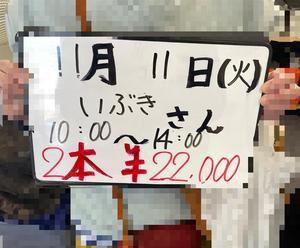 11月 11日(火)
いぶき さん
10:00〜14:00
2本 ¥22.000